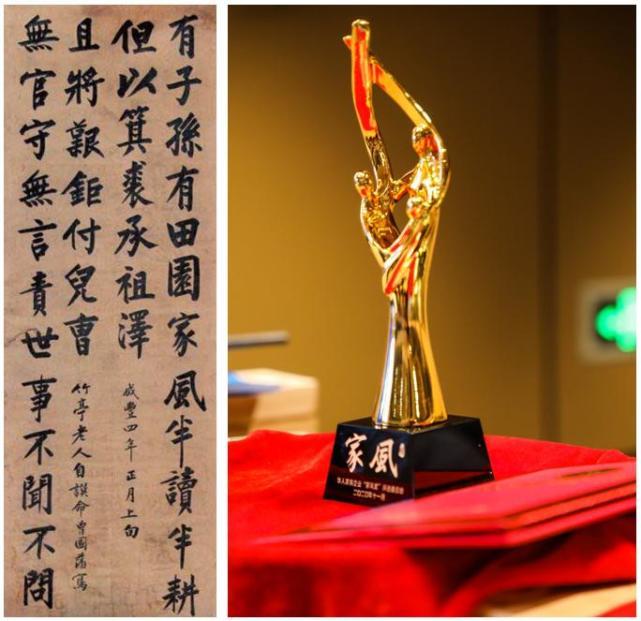 有子孫有田園家風半讀半耕
但以箕裘承祖澤
咸豐四年正月上旬
無官守無言責世事不聞不問
且將艱鉅付兒曹
竹亭老人自譔命曾國藩寫
家風
华人家族企业“家风奖”评选委员会
二〇二〇年十一月